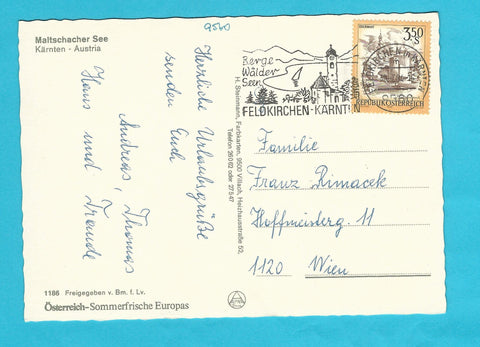 9560
Maltschacher See
Kärnten - Austria
Herrliche Urlaubsgrüße
senden Euch
Andreas, Thomas
Hans und Traude
1186 Freigegeben v. Bm. f. Lv.
Österreich-Sommerfrische Europas
H. Steinmann, Farbkarten, 9500 Villach, Heizhausstraße 52,
Telefon 26062 oder 27547
Berge
Wälder
Seen
FELDKIRCHEN-KÄRNTEN
3.50
S
REPUBLIK ÖSTERREICH
9560
Familie
Franz Rimacek
Hoffmeisterg. 11
1120 Wien